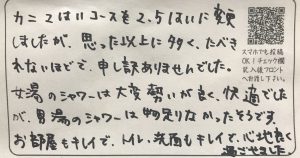 カニづくしコースを2.5ぱいに変更
しましたが、思った以上に多く、たべき
れないほどで、申し訳ありませんでした。
女湯のシャワーは大変勢いが良く、快適でした
が、男湯のシャワーは物足りなかったそうです。
お部屋もキレイで、トイレ、洗面もキレイで、心地良く
過ごせました
スマホでも投稿
OK!チェック欄
記入後フロント
へお渡し下さい。